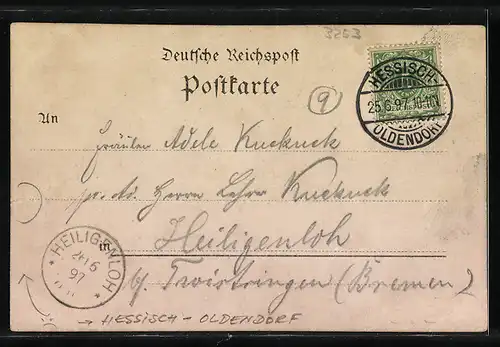 3253
Deutsche Reichspost
Postkarte
9
HESSISCH-
25.6.97.
OLDENDORF
An
Fräulein Adele Kuckuck
Herrn Lehrer Kuckuck
in Heiligenloh
HEILIGENLOH
6
97
b/ Twistringen (Bremen)
→ HESSISCH - OLDENDORF